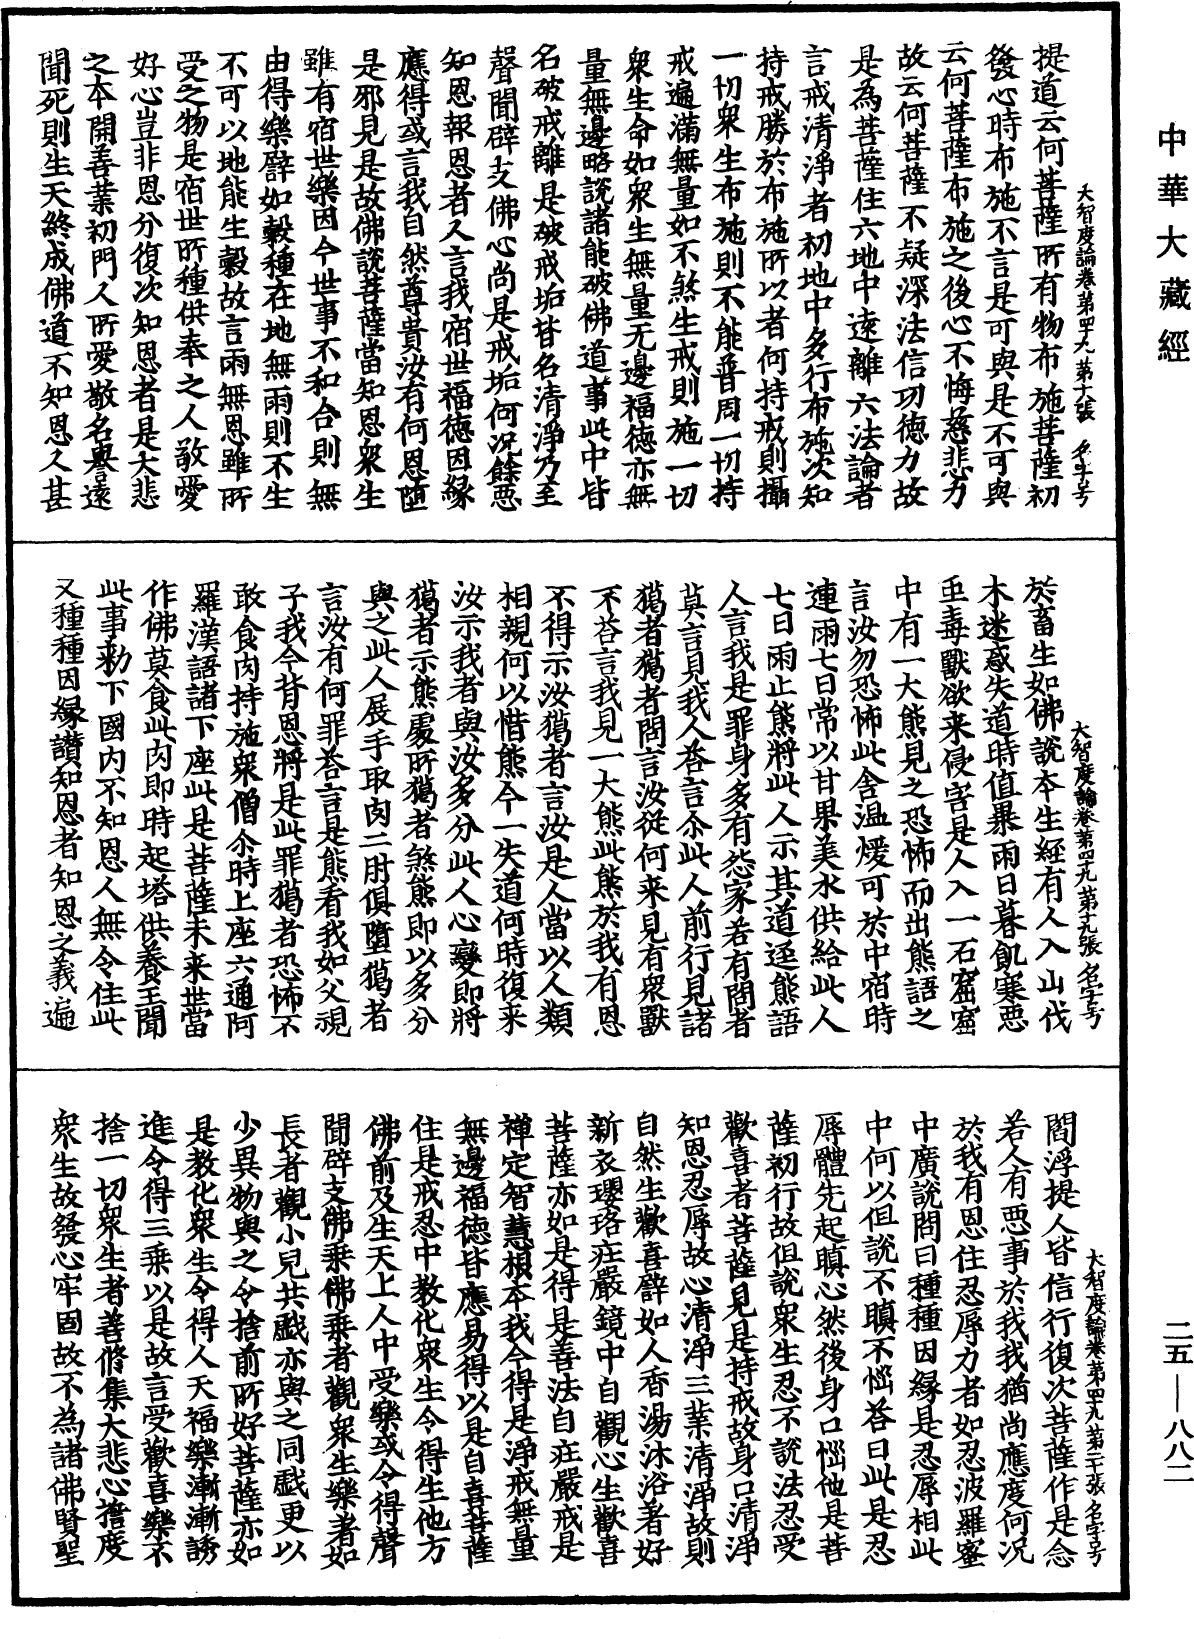 中華大藏經
大智度論卷第四十九 第十八張 名字号
提道云何菩薩所有物布施菩薩初
發心時布施不言是可與是不可與
云何菩薩布施之後心不悔慈悲力
故云何菩薩不疑深法信功德力故
是為菩薩住六地中遠離六法論者
言戒清淨者初地中多行布施次知
持戒勝於布施所以者何持戒則攝
一切衆生布施則不能普周一切持
戒遍滿無量如不煞生戒則施一切
衆生命如衆生無量无邊福德亦無
量無邊略說諸能破佛道事此中皆
名破戒離是破戒垢皆名清淨乃至
聲聞辟支佛心尚是戒垢何況餘惡
知恩報恩者人言我宿世福德因緣
應得或言我自然尊貴汝有何恩墮
是邪見是故佛說菩薩當知恩衆生
雖有宿世樂因今世事不和合則無
由得樂辟如穀種在地無雨則不生
不可以地能生穀故言雨無恩雖所
受之物是宿世所種供奉之人敬愛
好心豈非恩分復次知恩者是大悲
之本開善業初門人所愛敬名譽遠
聞死則生天終成佛道不知恩人甚
大智度論卷第四十九 第十九張 名字号
於畜生如佛說本生經有人入山伐
木迷惑失道時值暴雨日暮飢寒惡
虫毒獸欲来侵害是人入一石窟窟
中有一大熊見之恐怖而出熊語之
言汝勿恐怖此舍温煖可於中宿時
連雨七日常以甘果美水供給此人
七日雨止熊將此人示其道逕熊語
人言我是罪身多有怨家若有問者
莫言見我人荅言尒此人前行見諸
獦者獦者問言汝從何来見有衆獸
不荅言我見一大熊此熊於我有恩
不得示汝獦者言汝是人當以人類
相親何以惜熊今一失道何時復来
汝示我者與汝多分此人心變即將
獦者示熊處所獦者煞熊即以多分
與之此人展手取肉二肘俱墮獦者
言汝有何罪荅言是熊看我如父視
子我今背恩將是此罪獦者恐怖不
敢食肉持施衆僧尒時上座六通阿
羅漢語諸下座此是菩薩未来世當
作佛莫食此肉即時起塔供養王聞
此事勑下國内不知恩人無令住此
又種種因緣讃知恩者知恩之義遍
大智度論卷第四十九 第二十張 名字号
閻浮提人皆信行復次菩薩作是念
若人有惡事於我我猶尚應度何況
於我有恩住忍辱力者如忍波羅蜜
中廣說問曰種種因緣是忍辱相此
中何以但說不瞋不惱荅曰此是忍
辱體先起瞋心然後身口惱他是菩
薩初行故但說衆生忍不說法忍受
歡喜者菩薩見是持戒故身口清淨
知恩忍辱故心清淨三業清淨故則
自然生歡喜辟如人香湯沐浴著好
新衣瓔珞莊嚴鏡中自觀心生歡喜
菩薩亦如是得是善法自莊嚴戒是
禪定智慧根本我今得是淨戒無量
無邊福德皆應易得以是自喜菩薩
住是戒忍中教化衆生令得生他方
佛前及生天上人中受樂或令得聲
聞辟支佛乘佛乘者觀衆生樂著如
長者觀小兒共戲亦與之同戲更以
少異物與之令捨前所好菩薩亦如
是教化衆生令得人天福樂漸漸誘
進令得三乘以是故言受歡喜樂不
捨一切衆生者善修集大悲心擔度
衆生故發心牢固故不為諸佛賢聖
二五—八八二